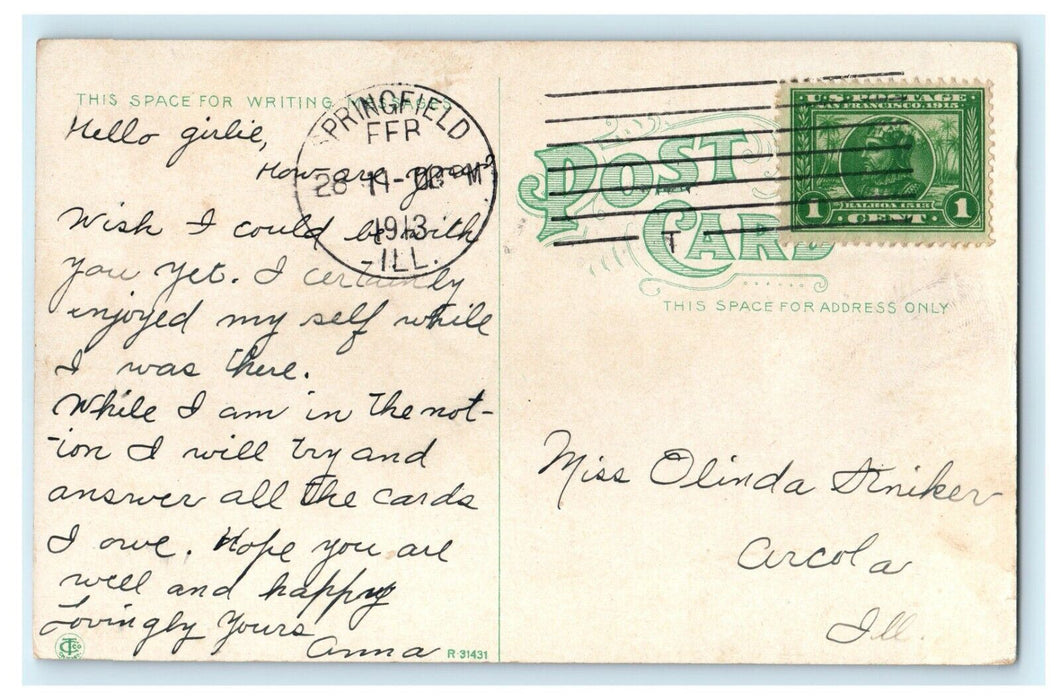 THIS SPACE FOR WRITING MESSAGES
Hello girlie,
How are you?
Wish I could be with
you yet. I certainly
enjoyed my self while
I was there.
While I am in the not-
-ion I will try and
answer all the cards
I owe. Hope you are
well and happy
Lovingly Yours
Anna
R-31431
SPRINGFIELD
FEB
28 11-PM
1913
-ILL.
T
POST
CARD
THIS SPACE FOR ADDRESS ONLY
U.S. POSTAGE
SAN FRANCISCO, 1915
BALBOA 1513
1 CENT 1
Miss Olinda
Arcola
Ill.